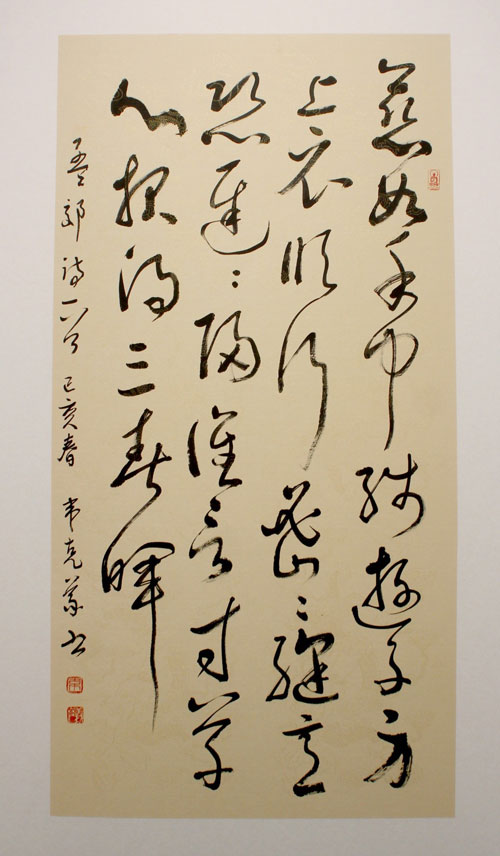 慈母手中線遊子身
上衣臨行密々縫意
恐遲々歸誰言寸草
心報得三春暉
孟郊詩一首 己亥春 韋克義書